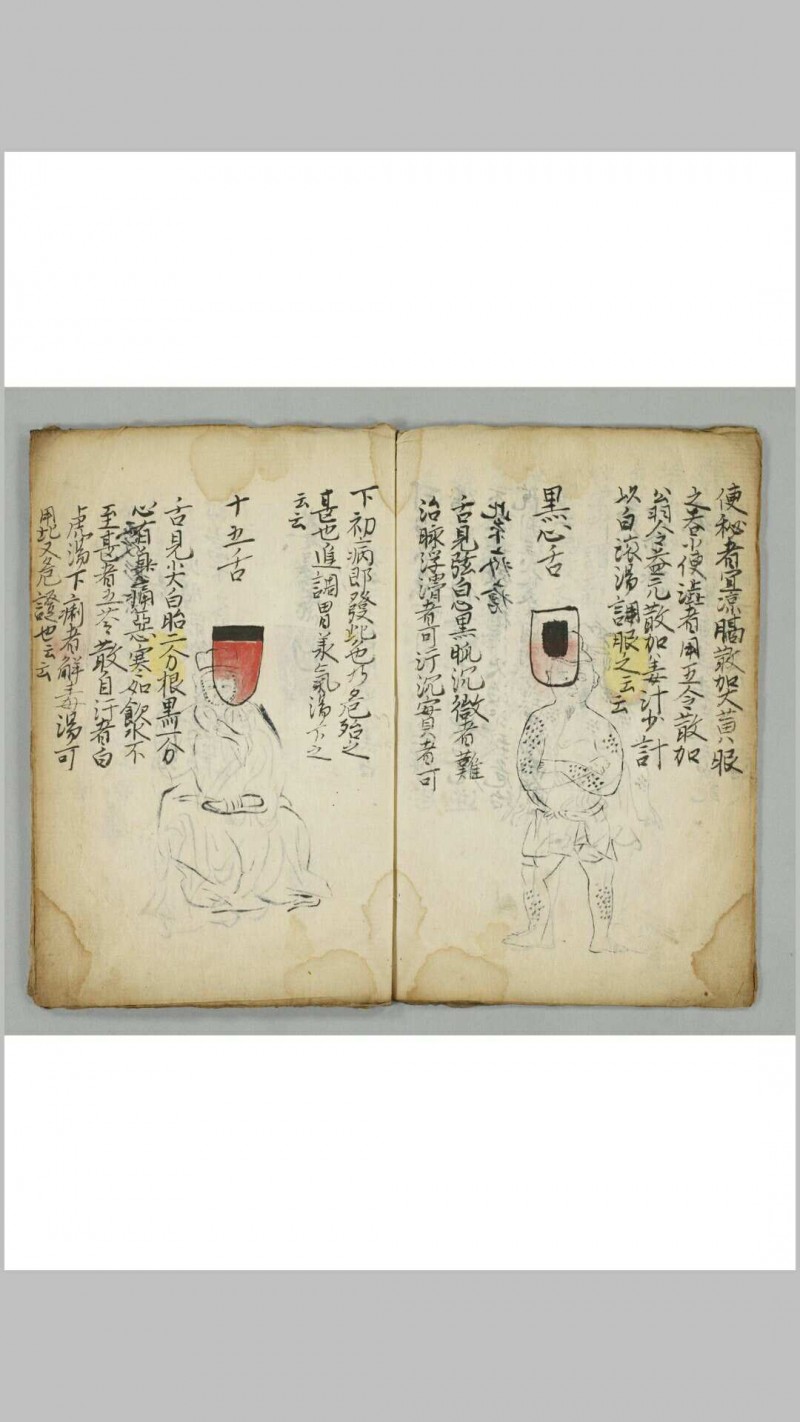 便秘者宜凉膈散加大黄服
之春小便澁者用五令散加
公翁令益元散加姜汁少計
以白滚湯調服之云云
黒心舌
舌見弦白心黒脉沉微者難
治脉浮濇者可汗沉實者可
下初病即發此色乃危殆之
甚也進調胃羡氣湯下之
云云
十五舌
舌見尖白胎二分根黒一分
心惡寒如飲水不
至甚者五苓散自汗者白
虎湯下痢者解毒湯可
用此又危證也云云